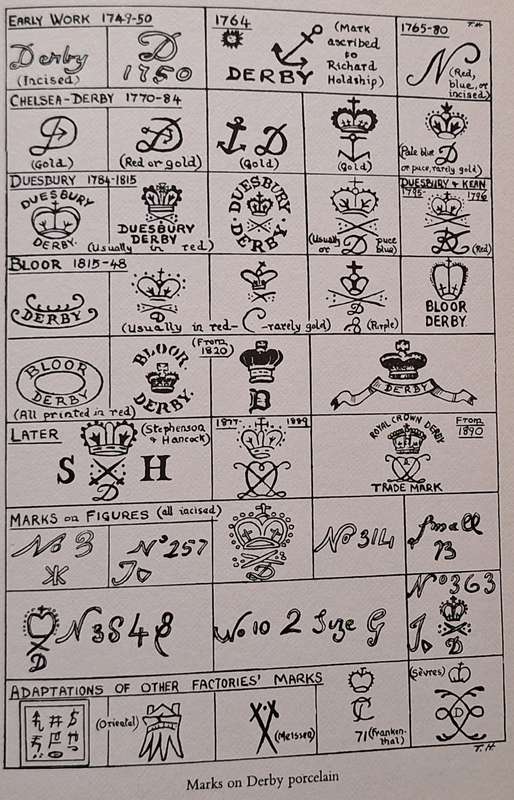 EARLY WORK 1749-50
1764
1765-80
T.H
Derby
(Incised)
D
1750
DERBY
(Mark
ascribed
to
Richard
Holdship)
N
(Red,
blue, or
incised)
CHELSEA-DERBY 1770-84
D
(Gold)
D
(Red or gold)
D
(Gold)
(Gold)
D
(Pale blue
or puce, rarely gold)
DUESBURY 1784-1815
DUESBURY & KEAN
1795-
1796
DUESBURY
DERBY.
DUESBURY
DERBY
(Usually in red)
DUESBURY
DERBY
(Usually
or
D
puce
blue)
(Red)
BLOOR 1815-48
DERBY
D
(Usually in red-
-rarely gold)
D
(Purple)
BLOOR
DERBY.
BLOOR
DERBY
(All printed in red)
BLOOR.
DERBY.
(From
1820)
D
DERBY
LATER
(Stephenson
& Hancock)
S
H
D
1877-
1889
ROYAL CROWN DERBY
TRADE MARK
From
1890
MARKS on FIGURES (all incised)
No 3
No 257
D
No 314
small
73
D
N3848
No 10 2 Size G
No 363
D
ADAPTATIONS OF OTHER FACTORIES' MARKS
(Oriental)
(Meissen)
71
(Franken-
thal)
(Sèvres)
D
T.H.
Marks on Derby porcelain